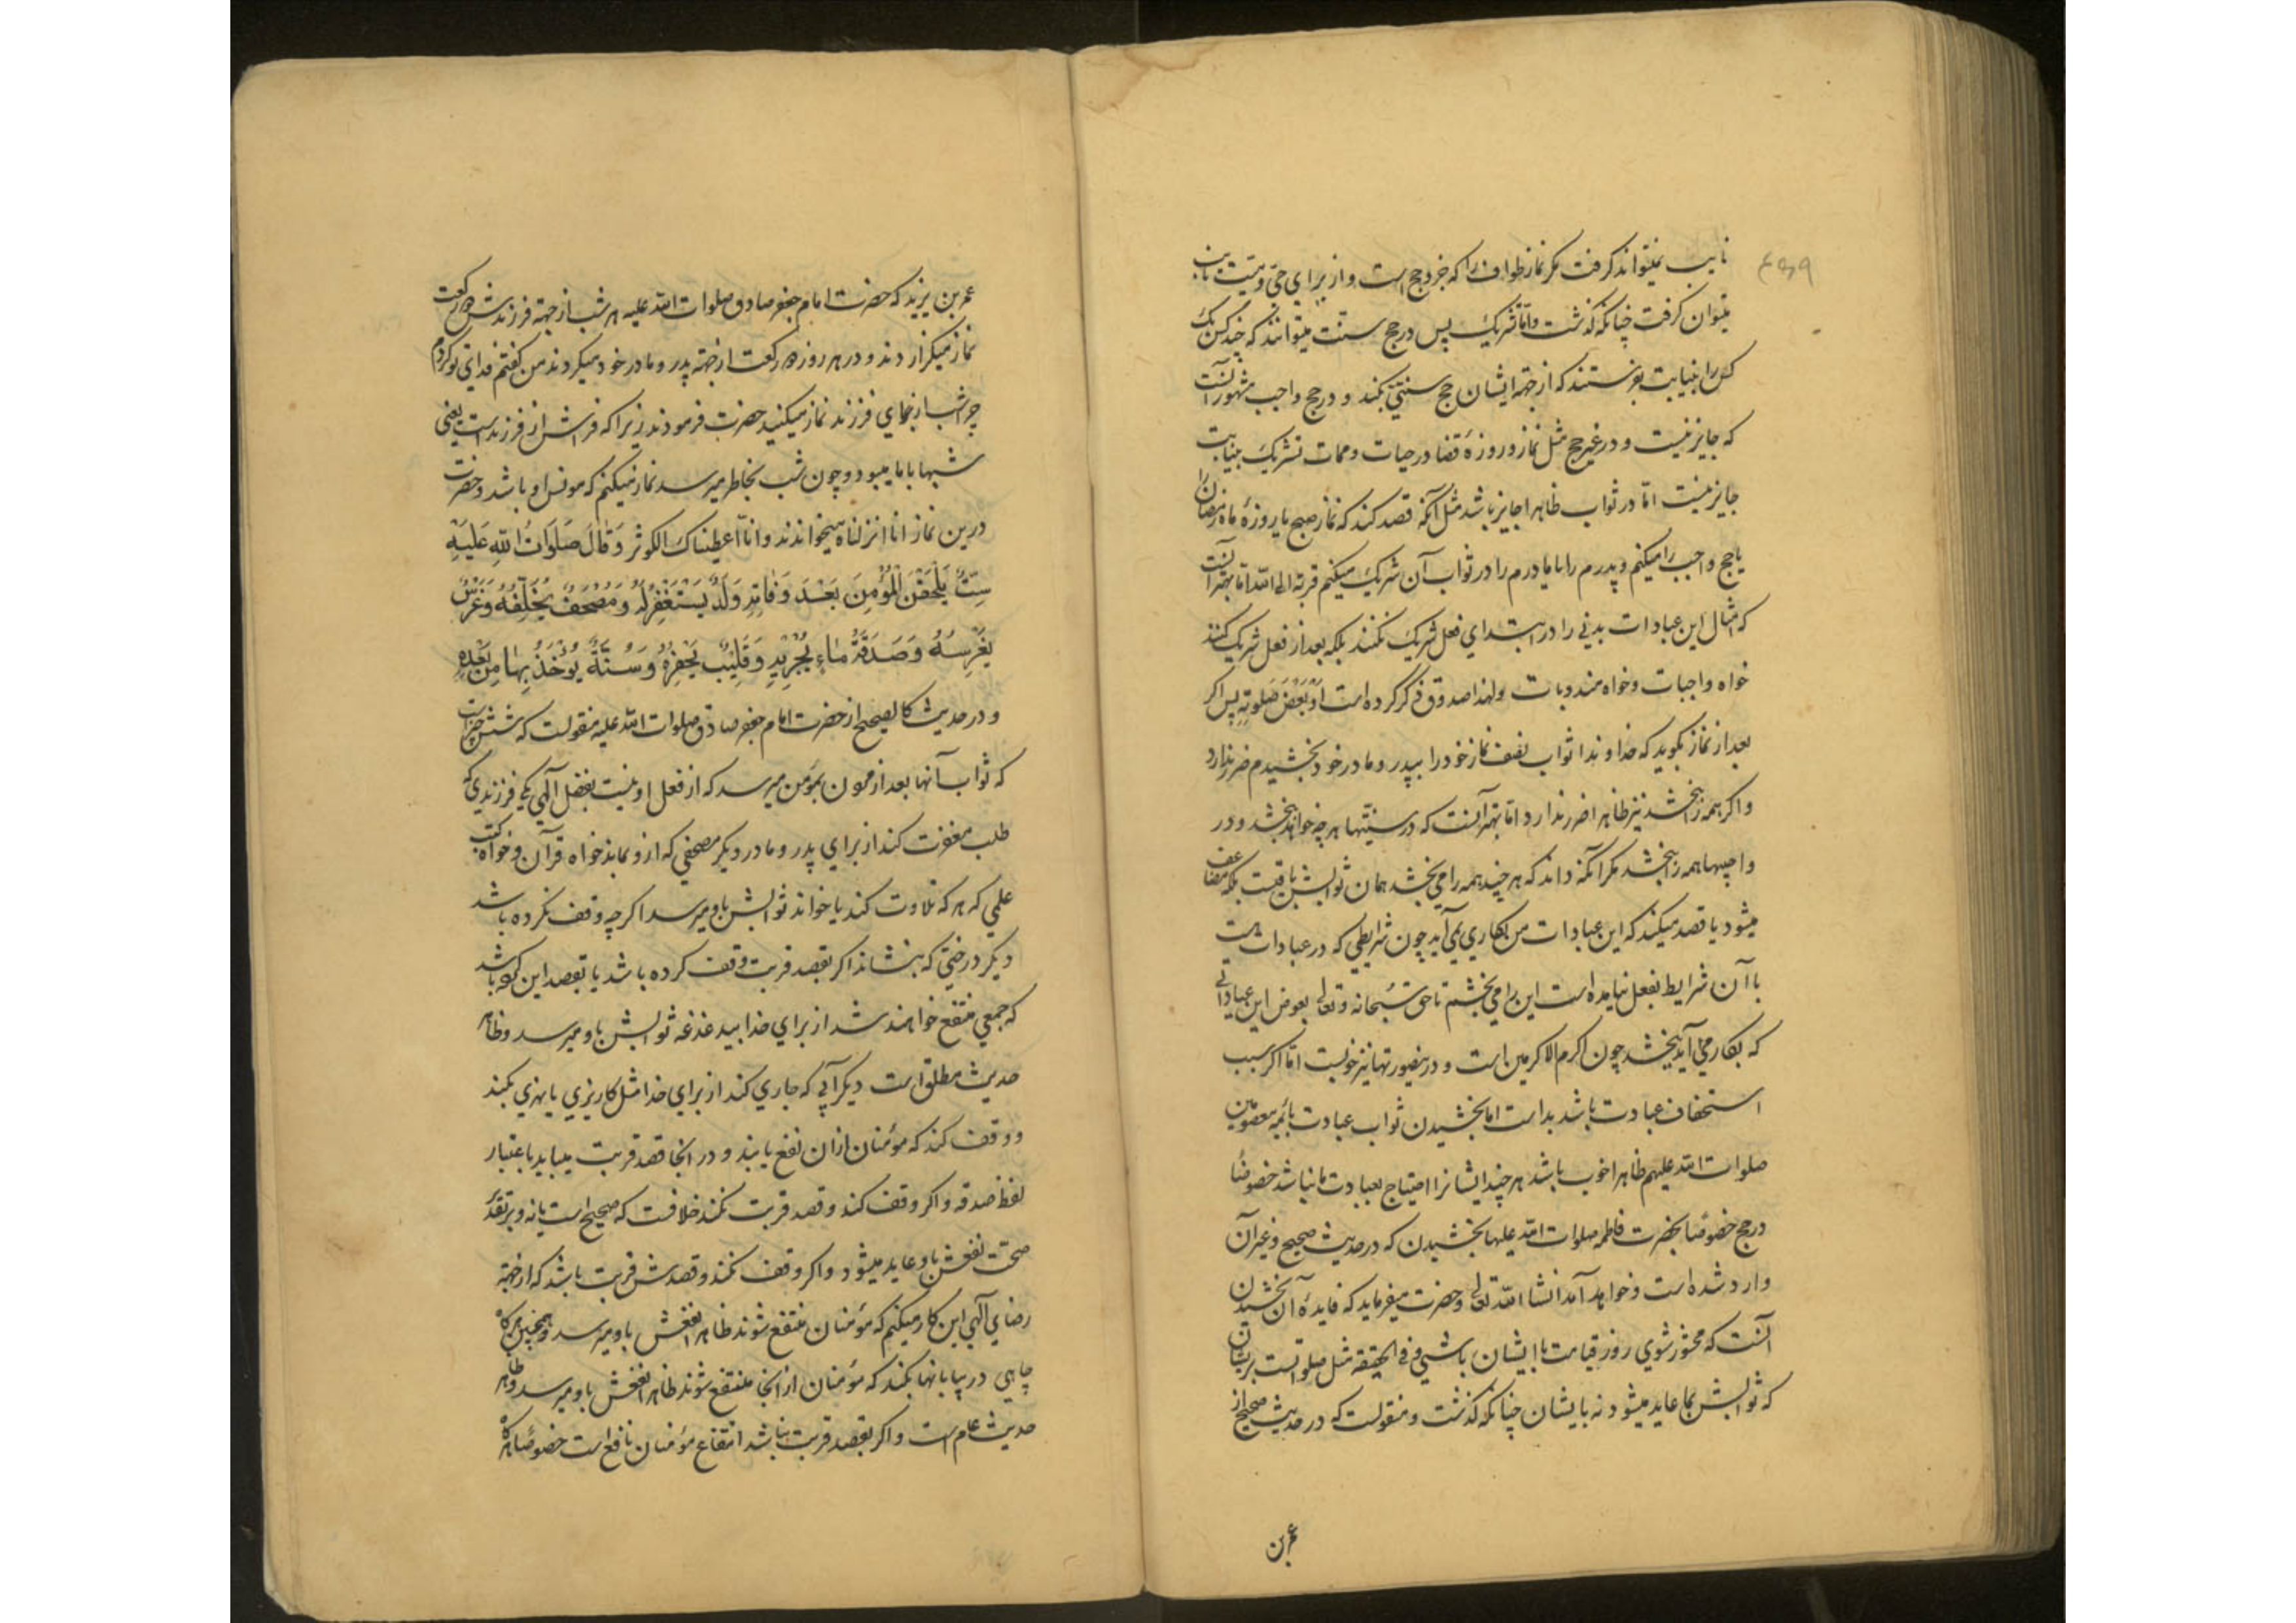 نایب نمیتواند کرفت مکر نماز طواف را که جزو حج است و از برای حی و میت نایب
میتوان کرفت چنانکه کذشت و اما تشریک پس در حج سنت میتوانند که چند کس یک
کس را بنیابت بفرستند که از جهة ایشان حج سنتی بکند و در حج واجب مشهور آنست
که جایز نیست و در غیر حج مثل نماز و روزهٔ قضا در حیات و ممات تشریک بنیابت
جایز نیست اما در ثواب ظاهرا جایز باشد مثل آنکه قصد کند که نماز صبح یا روزهٔ ماه رمضان را
یا حج واجب را میکنم و پدرم را با مادرم را در ثواب آن شریک میکنم قربة الی الله اما بهتر آنست
که امثال این عبادات بدنی را در ابتدای فعل شریک نکنند بلکه بعد از فعل شریک کنند
خواه واجبات و خواه مندوبات و لهذا صدوق ذکر کرده است او بعض صلوته پس اکر
بعد از نماز بکوید که خداوندا ثواب نصف نماز خود را بپدر و مادر خود بخشیدم ضرر ندارد
و اکر همه را بخشد نیز ظاهرا ضرر ندارد اما بهتر آنست که در سنتیها هر چه خواهد بخشد و در
واجبها همه را نبخشد مکر آنکه داند که هر چند همه را می بخشد همان ثوابش باقیست بلکه مضاعف
میشود یا قصد میکند که این عبادات من بکاری نمی آید چون شرایطی که در عبادات هست
با آن شرایط بفعل نیامده است این را می بخشم تا حق سبحانه و تعالی بعوض این عباداتی
که بکار من آید ببخشد چون اکرم الاکرمین است و درینصورتها نیز خوبست اما اکر سبب
استخفاف عبادت باشد بد است اما بخشیدن ثواب عبادت بائمه معصومین
صلوات الله علیهم ظاهرا خوب باشد هر چند ایشانرا احتیاج بعبادت ما نباشد خصوصًا
در حج خصوصًا بحضرت فاطمه صلوات الله علیها بخشیدن که در حدیث صحیح و غیر آن
وارد شده است و خواهد آمد انشا الله تعالی و حضرت میفرماید که فایدهٔ آن بخشیدن
آنست که محشور شوی روز قیامت با ایشان باشی و فی الحقیقه مثل صلواتست بر ایشان
که ثوابش بما عاید میشود نه بایشان چنانکه کذشت و منقولست که در حدیث صحیح از
عمر بن
عمر بن یزید که حضرت امام جعفر صادق صلوات الله علیه هر شب از جهة فرزندش دو رکعت
نماز میکزاردند و در هر روز دو رکعت از جهة پدر و مادر خود میکردند من کفتم فدای تو کردم
چرا شب از برای فرزند نماز میکنید حضرت فرمودند زیرا که فراش از فرزند است یعنی
شبها با ما میبود و چون شب بخاطر میرسد نماز میکنم که مونس او باشد و حضرت
درین نماز انا انزلناه میخواندند و انا اعطیناک الکوثر وَقَالَ صَلَوَاتُ اللهِ عَلَیْهِ
سِتَّةٌ یَلْحَقْنَ الْمُؤْمِنَ بَعْدَ وَفَاتِهِ وَلَدٌ یَسْتَغْفِرُ لَهُ وَمُصْحَفٌ یُخَلِّفُهُ وَغَرْسٌ
یَغْرِسُهُ وَصَدَقَةُ مَاءٍ یُجْرِیهِ وَقَلِیبٌ یَحْفِرُهُ وَسُنَّةٌ یُؤْخَذُ بِهَا مِنْ بَعْدِهِ
و در حدیث کالصحیح از حضرت امام جعفر صادق صلوات الله علیه منقولست که شش چیز است
که ثواب آنها بعد از مردن بمؤمن میرسد که از فعل او نیست بفضل الهی یکی فرزندی که
طلب مغفرت کند از برای پدر و مادر دیکر مصحفی که از و بماند خواه قرآن و خواه کتب
علمی که هر که تلاوت کند یا خواند ثوابش باو میرسد اکر چه وقف نکرده باشد
دیکر درختی که بنشاند اکر بقصد قربت وقف کرده باشد یا بقصد این کشته باشد
که جمعی منتفع خواهند شد از برای خدا بیدغدغه ثوابش باو میرسد و ظاهر
حدیث مطلق است دیکر آبی که جاری کند از برای خدا مثل کاریزی یا نهری بکند
و وقف کند که مؤمنان از ان نفع یابند و در انجا قصد قربت میباید باعتبار
لفظ صدقه و اکر وقف کند و قصد قربت نکند خلافست که صحیح است یا نه و بر تقدیر
صحت نفعش باو عاید میشود و اکر وقف نکند و قصدش قربت باشد که از جهة
رضای الهی این کار میکنم که مؤمنان منتفع شوند ظاهرا نفعش باو میرسد و همچنین هر کاه
چاهی در بیابانها بکند که مؤمنان از انجا منتفع شوند ظاهرا نفعش باو میرسد و ظاهر
حدیث عام است و اکر بقصد قربت نباشد انتفاع مؤمنان نافع است خصوصًا هر کاه